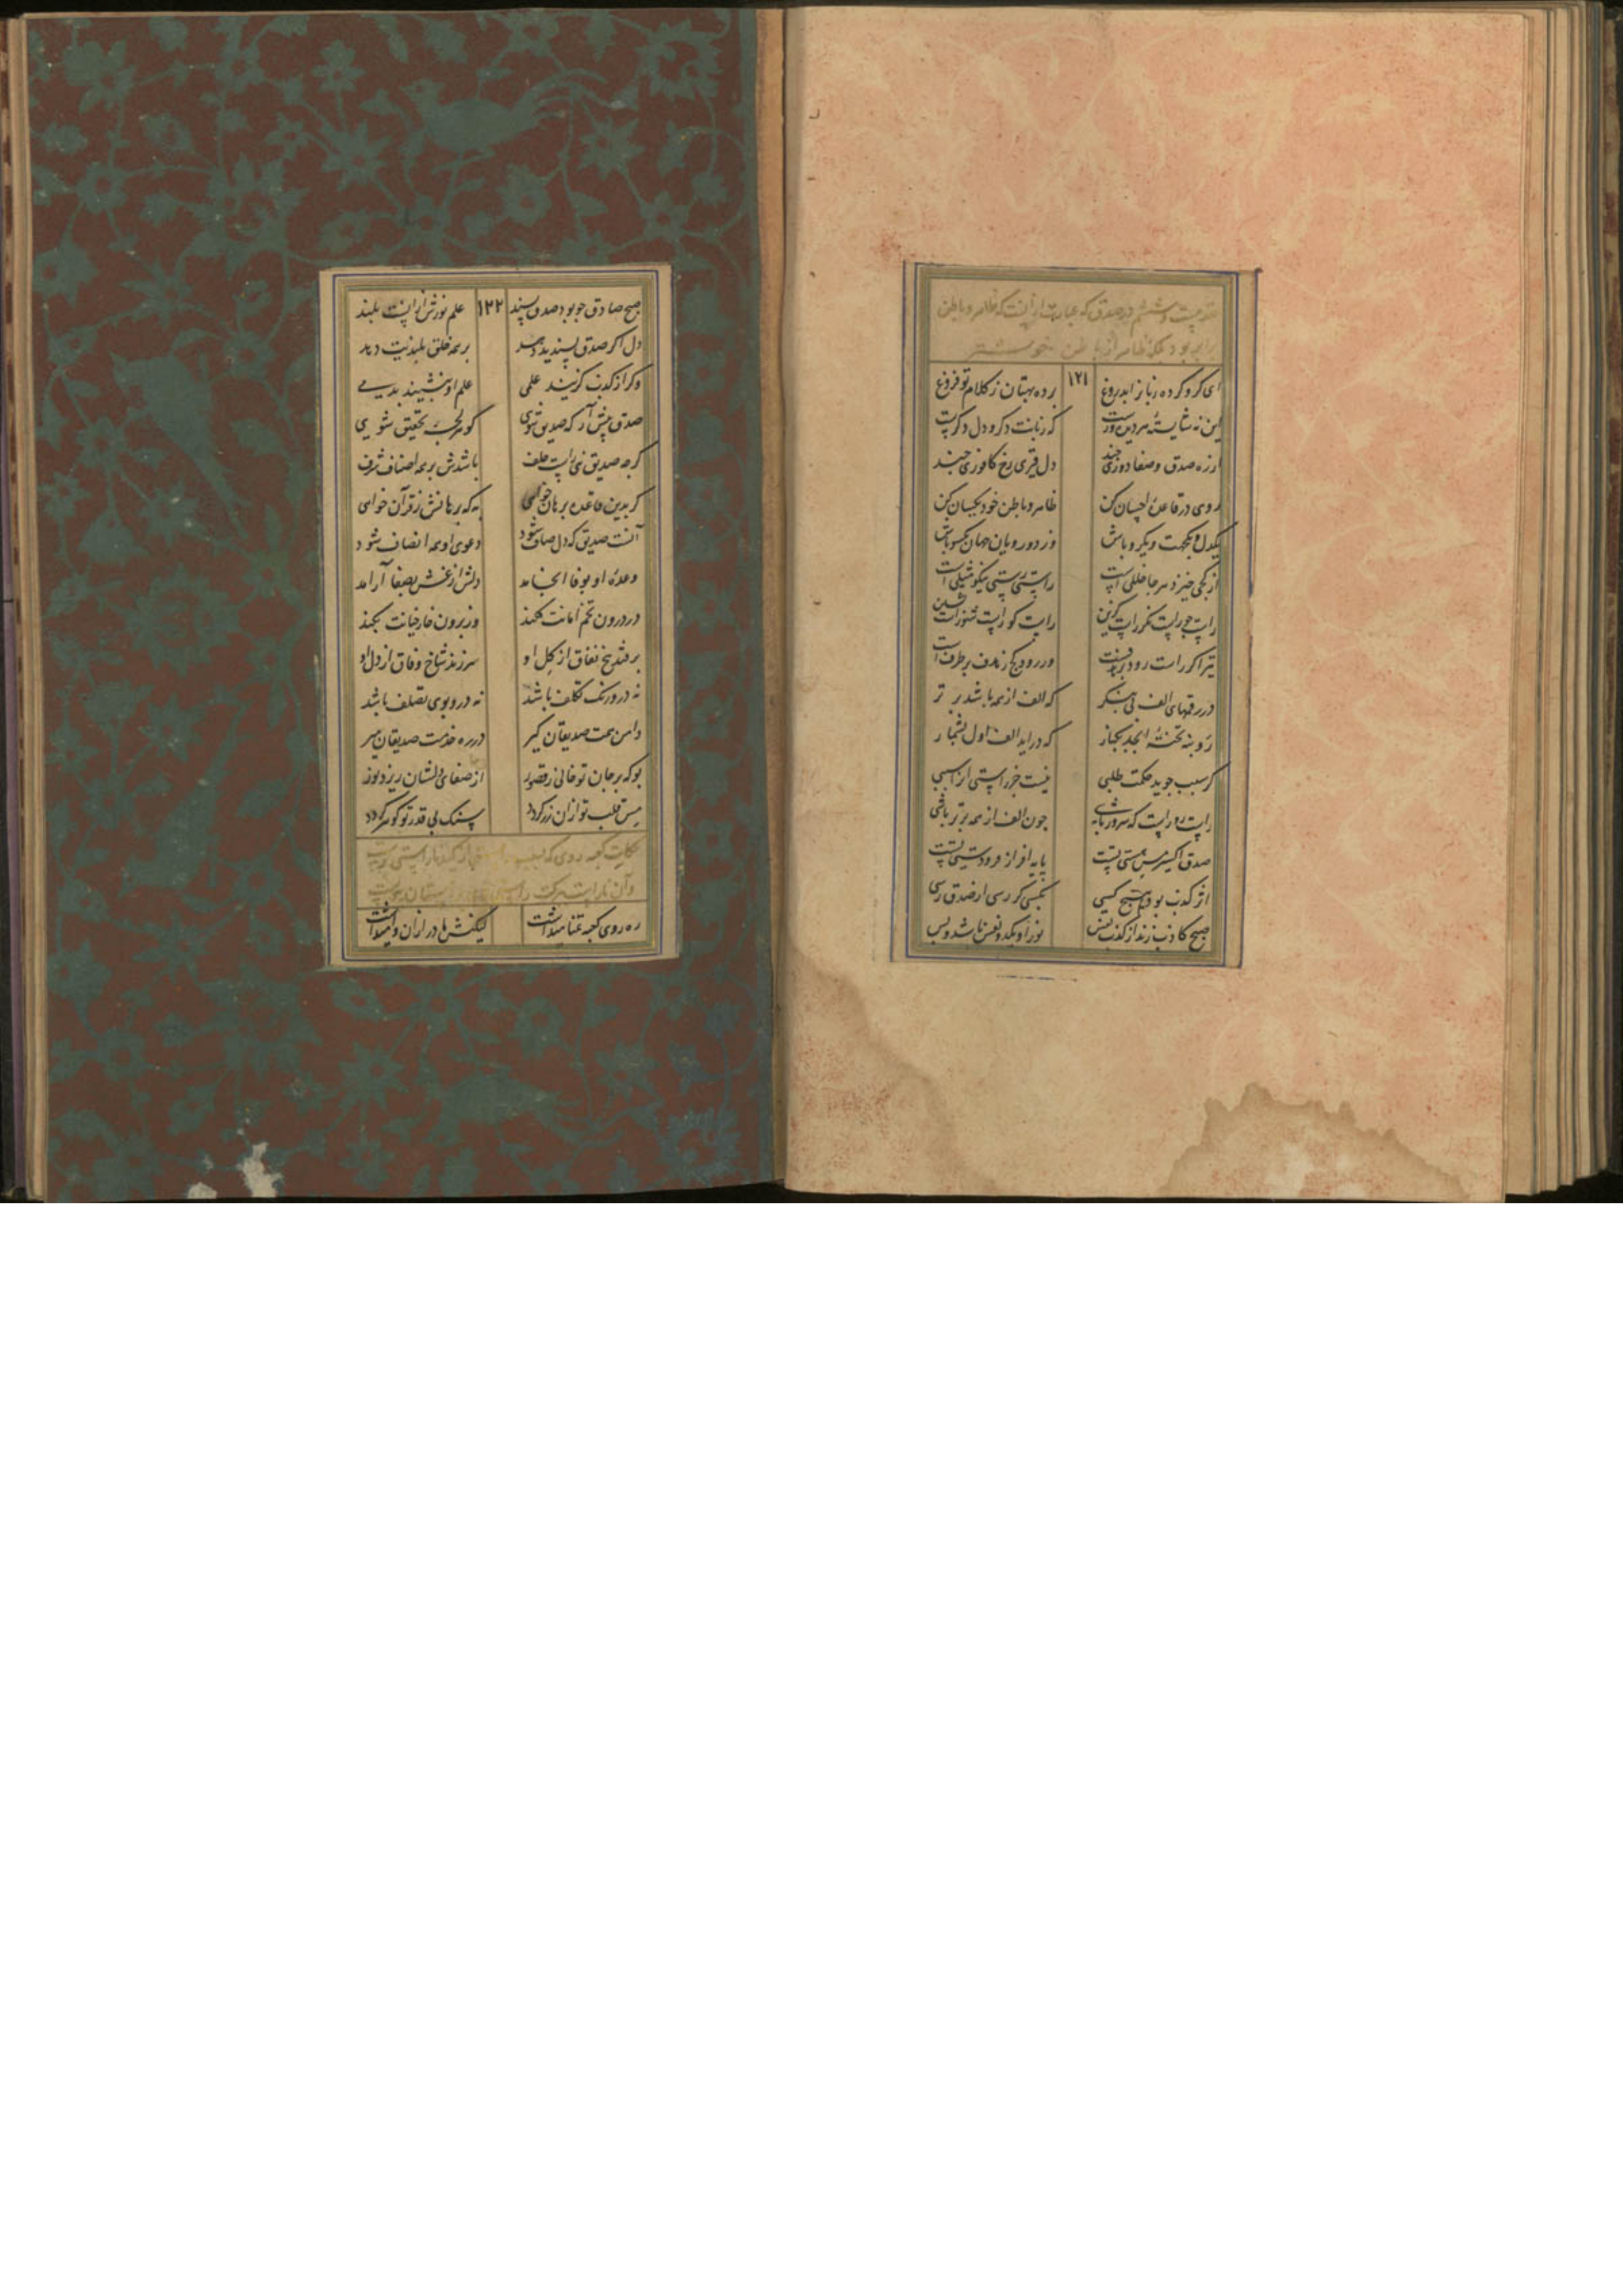 عقد بیست و ششم در صدق که عبارت از آنست که ظاهر و باطن
برابر بود بلکه ظاهر از باطن خوشتر
۱۲۱
ای کرو کرده زبانرا بدروغ برده بهتان ز کلام تو فروغ
این نه شایستهٔ هر دیده ورست که زبانت دکر و دل دکرست
از ره صدق و صفا دوری چند دل قیری رخ کافوری چند
روی در قاعدهٔ احسان کن ظاهر و باطن خود یکسان کن
یکدل و یکجهت و یکرو باش وز دورویان جهان یکسو باش
از کجی خیزد هر جا خللی است راستی رستی نیکو مثلی است
راست جو راست نکر راست کزین راست کو راست شنو راست نشین
تیر اکر راست رود بر هدفست ور رود کج ز هدف بر طرفست
در رقمهای الف بی بنکر که الف از همه باشد برتر
رو بنه تختهٔ ابجد بکنار که در آید الف اول بشمار
کر سبب جوید حکمت طلبی نیست جز راستی آنرا سببی
راست رو راست که سرور باشی چون الف از همه برتر باشی
صدق اکسیر مس هستی تست پایه افراز فرودستی تست
اثر کذب بود هیچ کسی بکسی کر رسی از صدق رسی
صبح کاذب زند از کذب نفس نور او یکدو نفس باشد و بس
۱۲۲
صبح صادق چو بود صدق پسند علم نورش از آنست بلند
دل اکر صدق پسندیت دهد بر همه خلق بلندیت دهد
صدق پیش آر که صدیق شوی کوهر لجهٔ تحقیق شوی
باشدش بر همه اصناف شرف
کر بدین قاعده برهان خواهی به که برهانش ز قرآن خواهی
آنست صدیق که دل صاف شود دعوی او همه انصاف شود
وعدهٔ او بوفا انجامد دلش از غش بصفا آرامد
در درون تخم امانت فکند وز برون خار خیانت بکند
بر فتد بیخ نفاق از کل او سر زند شاخ وفاق از دل او
نه درو رنک تکلف باشد نه درو بوی تصلف باشد
دامن همت صدیقان کیر در ره خدمت صدیقان میر
بو که بر جان تو خالی ز قصور از صفای دلشان ریزد نور
مس قلب تو از آن زر کردد سنک بی قدر تو کوهر کردد
حکایت کعبه روی که
ره روی کعبه تمنا میداشت لیکنش مادر از آن وا میداشت